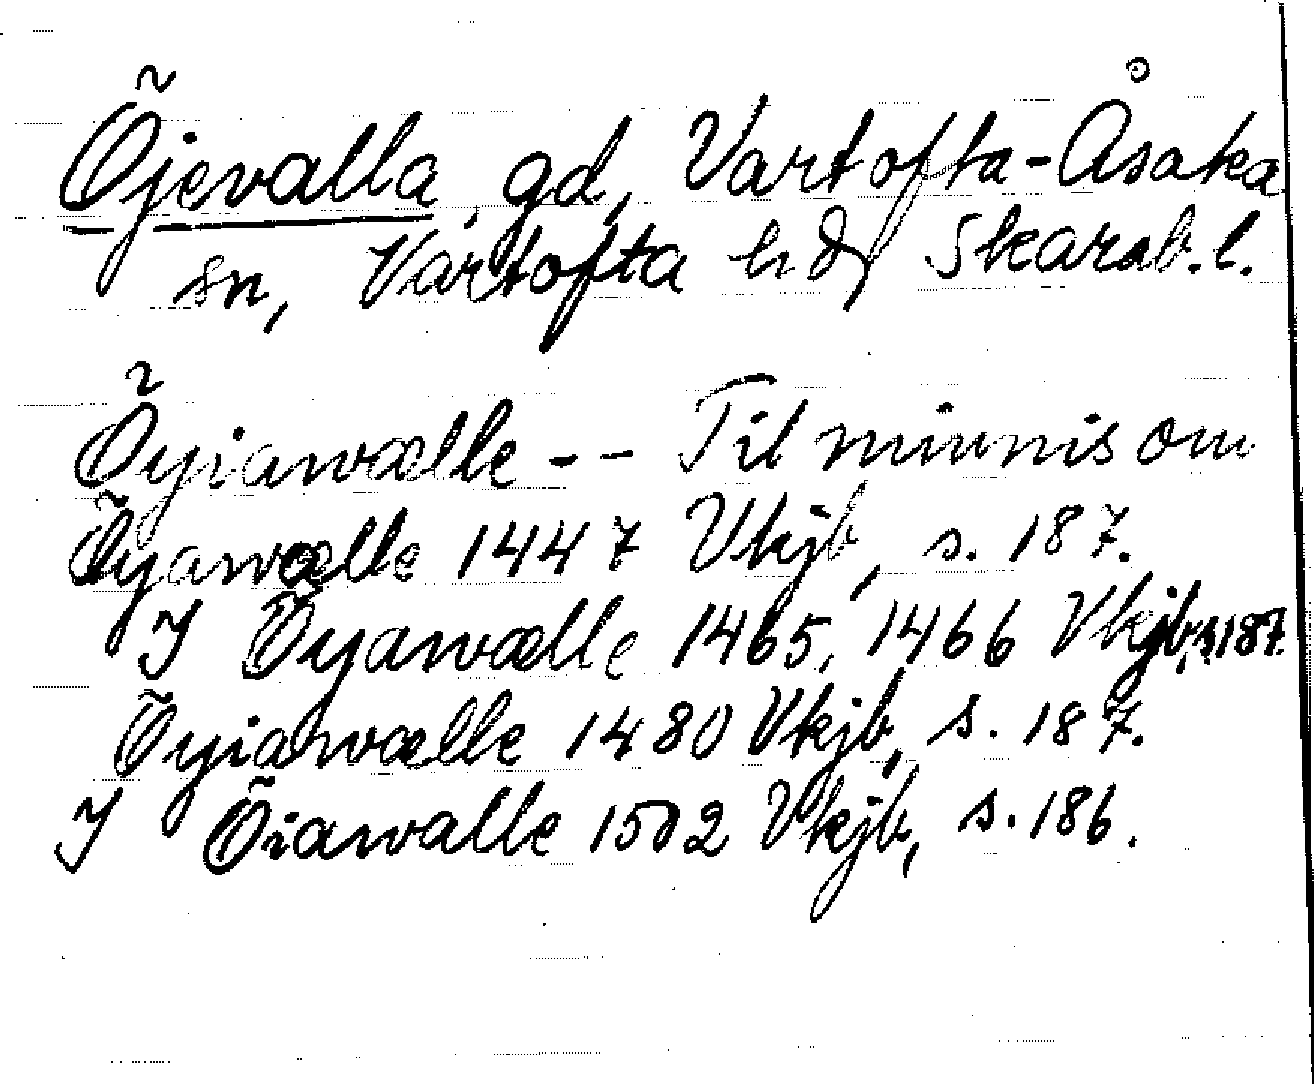 Õjevalla, gd, Vartofta-Åsaka
sn, Vartofta hd, Skarab.l.
Õyiawælle -- Til minnis om
Õyawælle 1447 Vkjb, s. 187.
J Õyawælle 1465, 1466 Vkjb, s. 187.
Õyiawælle 1480 Vkjb, s. 187.
J Õiawalle 1502 Vkjb, s. 186.